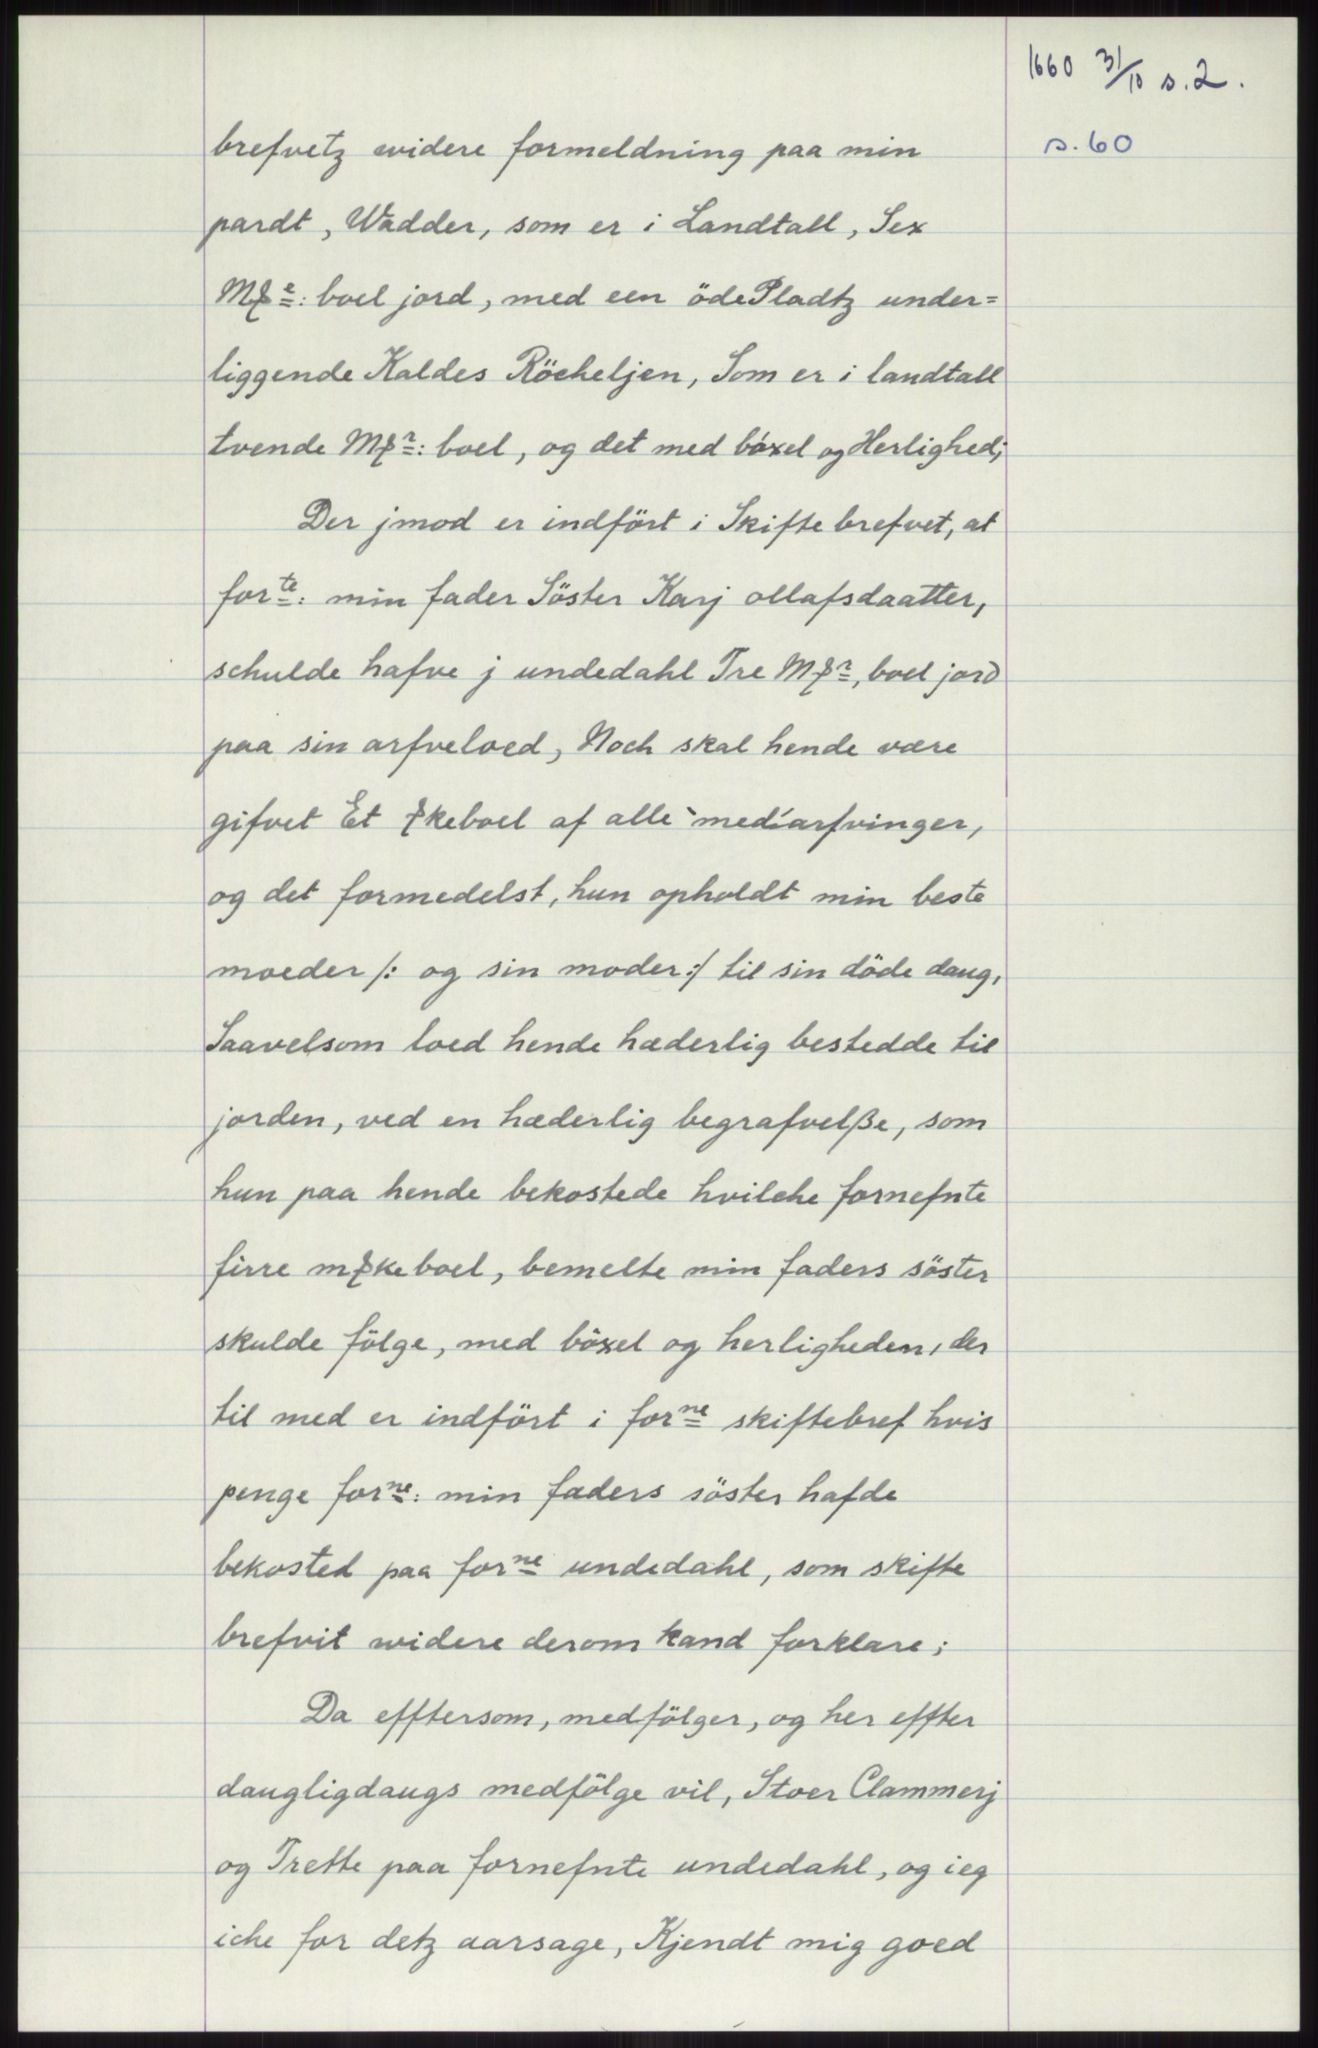 1660 31/10 s.2.
s.60
brefvetz widere formeldning paa min
pardt, Wadder, som er i Landtall, Sex
M℔e: boel jord, med een öde Pladtz under=
liggende Kaldes Röckeljen, Som er i landtall
tvende M℔r: boel, og det med böxel og Herlighed;
Der jmod er indfört i Skifte brefvet, at
forte: min fader Söster Karj ollafsdaatter,
schulde hafve j undedahl Tre M℔r, boel jord
paa sin arfveloed, Noch skal hende være
gifvet Et ℔keboel af alle medarfvinger,
og det formedelst, hun opholdt min beste
moeder /: og sin moder :/ til sin döde daug,
Saavelsom loed hende hæderlig bestedde til
jorden, ved en hæderlig begrafvelße, som
hun paa hende bekostede hvilche fornefnte
firre m℔ke boel, bemelte min faders söster
skulde fölge, med böxel og herligheden, der
til med er indfört i forne skiftebref hvis
penge forne: min faders söster hafde
bekosted paa forne undedahl, som skifte
brefvit widere derom kand forklare;
Da efftersom, medfölger, og her effter
daugligdaugs medfölge vil, Stoer Clammerj
og Trette paa fornefnte undedahl, og ieg
iche for detz aarsage, Kjendt mig goed